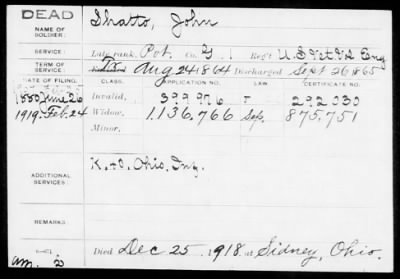 DEAD
NAME OF SOLDIER:
Shatto, John
SERVICE:
Late rank, Pvt. Co. G, 1 Reg't U.S. Vet Vol Eng
TERM OF SERVICE:
Enlisted Aug 24 1864 Discharged Sept 26 1865
DATE OF FILING. CLASS. APPLICATION NO. LAW. CERTIFICATE NO.
1880 June 26 Invalid, 399976 292030
1919, Feb. 24 Widow, 1,136,766 Sep. 875,751
Minor,
ADDITIONAL SERVICES:
K. 40. Ohio, Inf.
REMARKS:
Died Dec 25, 1918, at Sidney, Ohio.